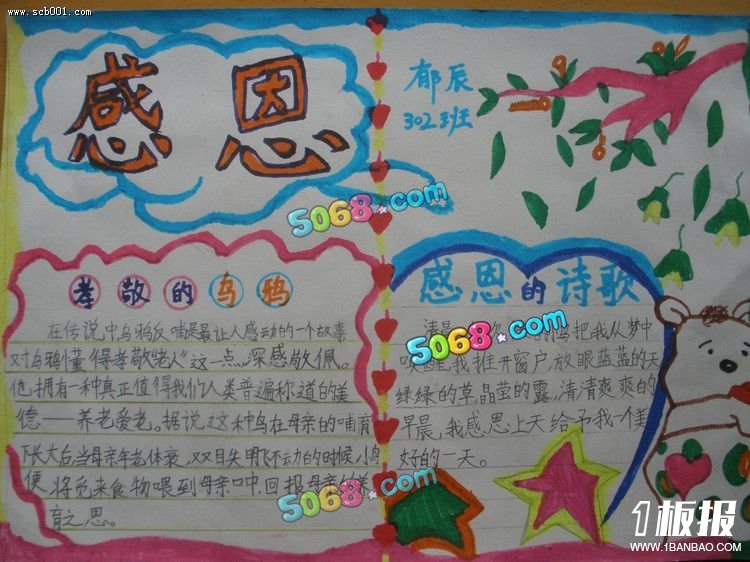 www.scb001.com
感恩
郁辰
302班
5068.com
孝敬的乌鸦
在传说中乌鸦反哺是最让人感动的一个故事
对乌鸦懂"得孝敬老人"这一点,深感敬佩。
他拥有一种真正值得我们人类普遍称道的美
德——养老爱老,据说这种鸟在母亲的哺育
下长大后,当母亲年老体衰,双目失明飞不动的时候,小鸟
便将觅来食物喂到母亲口中,回报母亲的养
育之恩。
感恩的诗歌
清晨 鸟把我从梦中
唤醒,我推开窗户,放眼蓝蓝的天
绿绿的草晶莹的露,清清爽爽的
早晨,我感恩上天给予我一个美
好的一天。
5068.com
5068.com
1板报
WWW.1BANBAO.COM